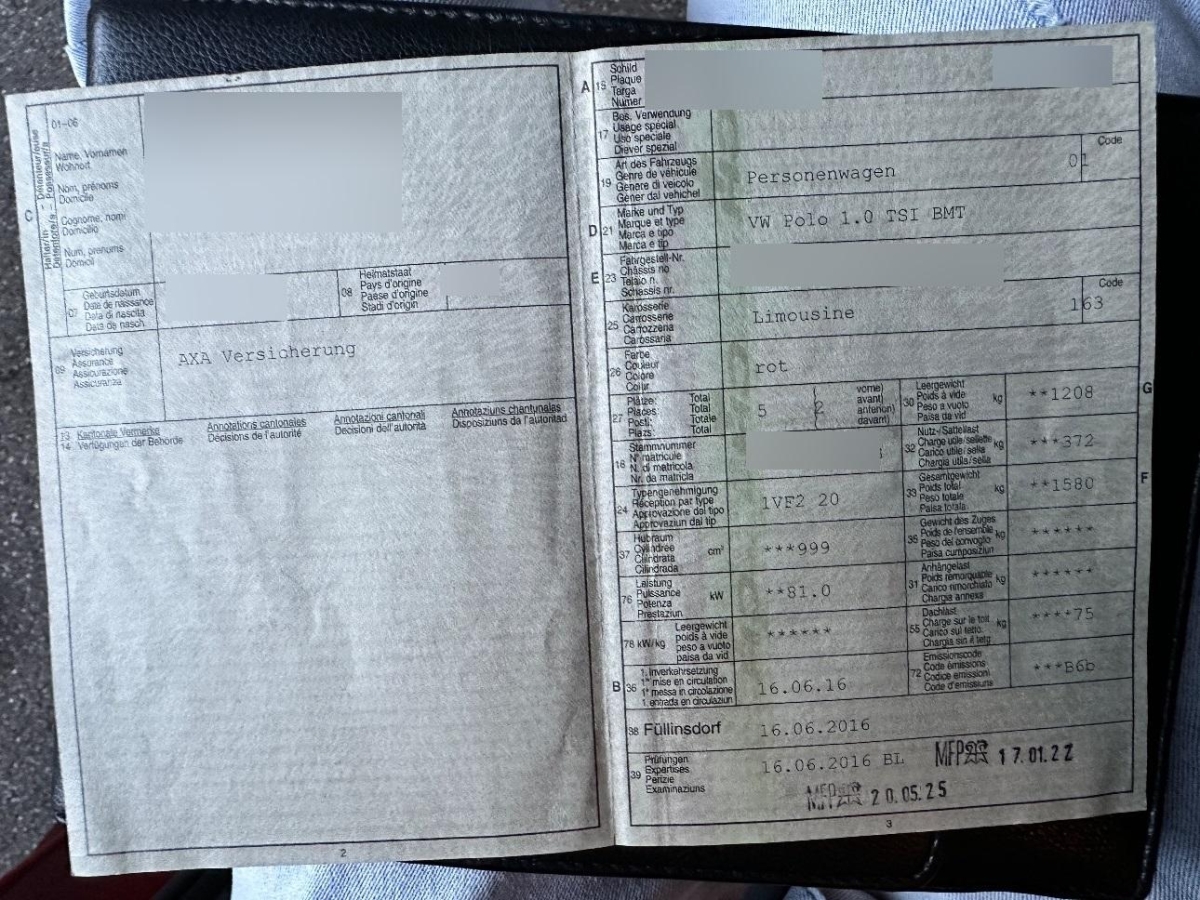 C
Halter/in - Détenteur/euse
Detentore/a - Possessur/a
01–06
Name, Vornamen
Wohnort
Nom, prénoms
Domicile
Cognome, nomi
Domicilio
Num, prenums
Domicil
07
Geburtsdatum
Date de naissance
Data di nascita
Data da nasch.
08
Heimatstaat
Pays d'origine
Paese d'origine
Stadi d'origin
09
Versicherung
Assurance
Assicurazione
Assicuranza
AXA Versicherung
13 Kantonale Vermerke
14 Verfügungen der Behörde
Annotations cantonales
Décisions de l'autorité
Annotazioni cantonali
Decisioni dell'autorità
Annotaziuns chantunalas
Disposiziuns da l'autoritad
2
A 15
Schild
Plaque
Targa
Numer
17
Bes. Verwendung
Usage spécial
Uso speciale
Diever spezial
19
Art des Fahrzeugs
Genre de véhicule
Genere di veicolo
Gener dal vehichel
Personenwagen
Code
01
D 21
Marke und Typ
Marque et type
Marca e tipo
Marca e tip
VW Polo 1.0 TSI BMT
E 23
Fahrgestell-Nr.
Châssis no
Telaio n.
Schassis nr.
25
Karosserie
Carrosserie
Carrozzeria
Carossaria
Limousine
Code
163
26
Farbe
Couleur
Colore
Colur
rot
27
Plätze: Total
Places: Total
Posti: Totale
Plazs: Total
5 ( 2
vorne)
avant)
anteriori)
davant)
G
30
Leergewicht
Poids à vide
Peso a vuoto
Paisa da vid
kg
**1208
18
Stammnummer
N° matricule
N. di matricola
Nr. da matricla
32
Nutz-/Sattellast
Charge utile/sellette
Carico utile/sella
Chargia utila/sella
kg
***372
24
Typengenehmigung
Réception par type
Approvazione del tipo
Approvaziun dal tip
1VF2 20
F
33
Gesamtgewicht
Poids total
Peso totale
Paisa totala
kg
**1580
37
Hubraum
Cylindrée
Cilindrata
Cilindrada
cm³
***999
35
Gewicht des Zuges
Poids de l'ensemble
Peso del convoglio
Paisa cumposiziun
kg
******
76
Leistung
Puissance
Potenza
Prestaziun
kW
**81.0
31
Anhängelast
Poids remorquable
Carico rimorchiato
Chargia annexa
kg
******
78 kW/kg
Leergewicht
poids à vide
peso a vuoto
paisa da vid
******
55
Dachlast
Charge sur le toit
Carico sul tetto
Chargia sin il tetg
kg
****75
B 36
1. Inverkehrsetzung
1re mise en circulation
1a messa in circolazione
1. entrada en circulaziun
16.06.16
72
Emissionscode
Code émissions
Codice emissioni
Code d'emissiuns
***B6b
38 Füllinsdorf
16.06.2016
39
Prüfungen
Expertises
Perizie
Examinaziuns
16.06.2016 BL
MFP 17.01.22
MFP 20.05.25
3